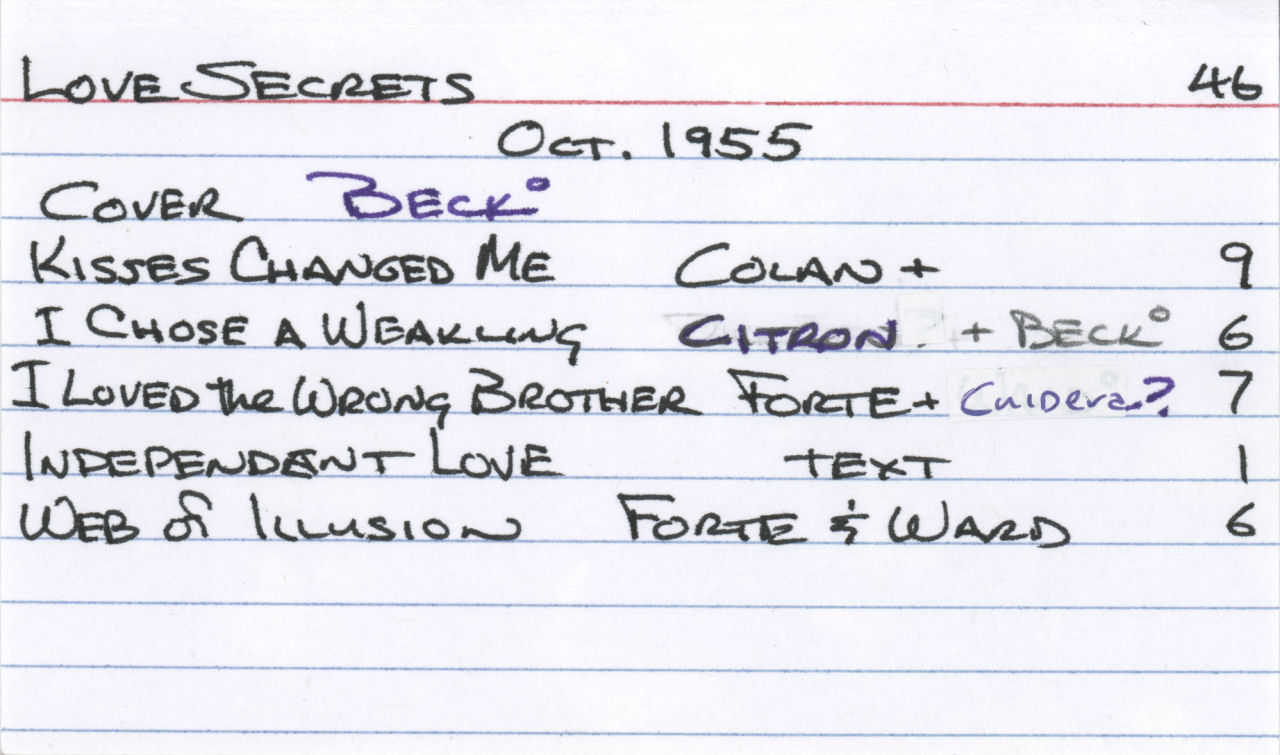 LOVE SECRETS 46
OCT. 1955
COVER BECK°
KISSES CHANGED ME COLAN + 9
I CHOSE A WEAKLING CITRON. + BECK° 6
I LOVED the WRONG BROTHER FORTE + Cuidera? 7
INDEPENDANT LOVE TEXT 1
WEB of ILLUSION FORTE & WARD 6